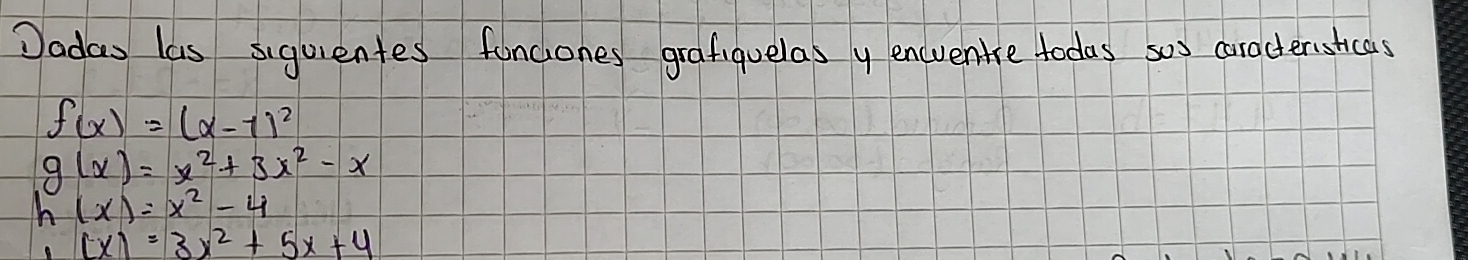 Dadas las siguientes funciones grafiquelas y encuentre todas sus caracteristicas
f(x) = (x-1)²
g(x) = x² + 3x² - x
h(x) = x² - 4
(x) = 3x² + 5x + 4